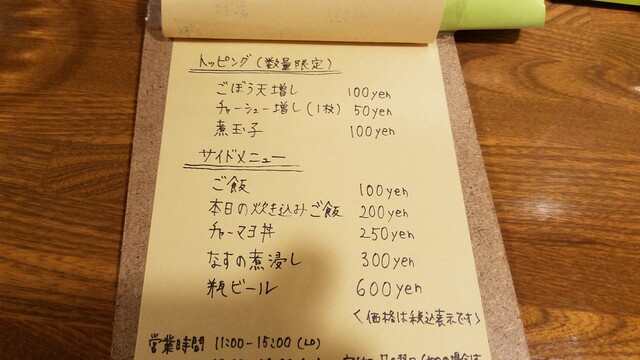 トッピング(数量限定)
ごぼう天増し 100yen
チャーシュー増し(1枚) 50yen
煮玉子 100yen
サイドメニュー
ご飯 100yen
本日の炊き込みご飯 200yen
チャーマヨ丼 250yen
なすの煮浸し 300yen
瓶ビール 600yen
〈価格は税込表示です〉
営業時間 11:00-15:00(LO)